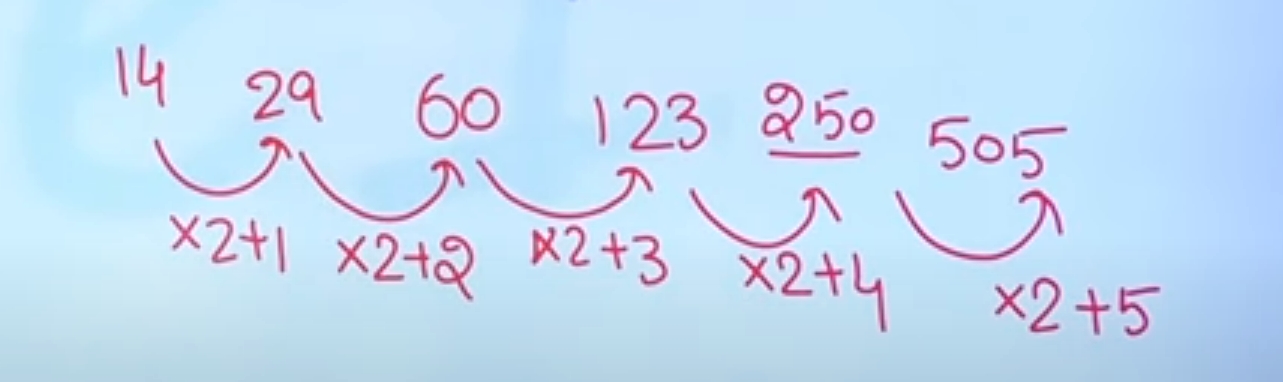 14 29 60 123 250 505
×2+1 ×2+2 ×2+3 ×2+4 ×2+5